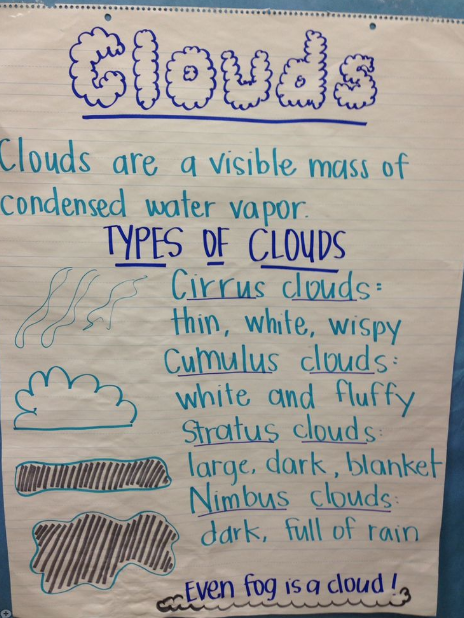 Clouds
Clouds are a visible mass of
condensed water vapor.
TYPES OF CLOUDS
Cirrus clouds:
thin, white, wispy
Cumulus clouds:
white and fluffy
Stratus clouds:
large, dark, blanket
Nimbus clouds:
dark, full of rain
Even fog is a cloud!